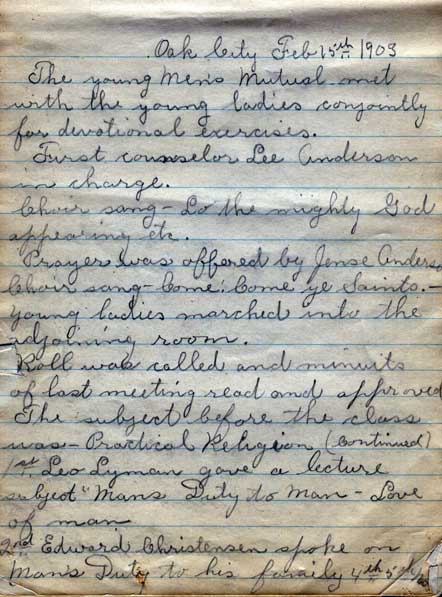 Oak City Feb 15th 1903
The young Men's Mutual met
with the young ladies conjointly
for devotional exercises.
First counselor Lee Anderson
in charge.
Choir sang - Lo the miighty God
appearing etc.
Prayer was offered by Jense Anders
Choir sang - Come, Come ye Saints. -
young ladies marched into the
adjoining room.
Roll was called and minuits
of last meeting read and approved
The subject before the class
was - Practical Religion (Continued)
1st Leo Lyman gave a lecture
subject "Mans Duty to Man - Love
of man
2nd Edward Christensen spoke on
Man's Duty to his family 4th 5th